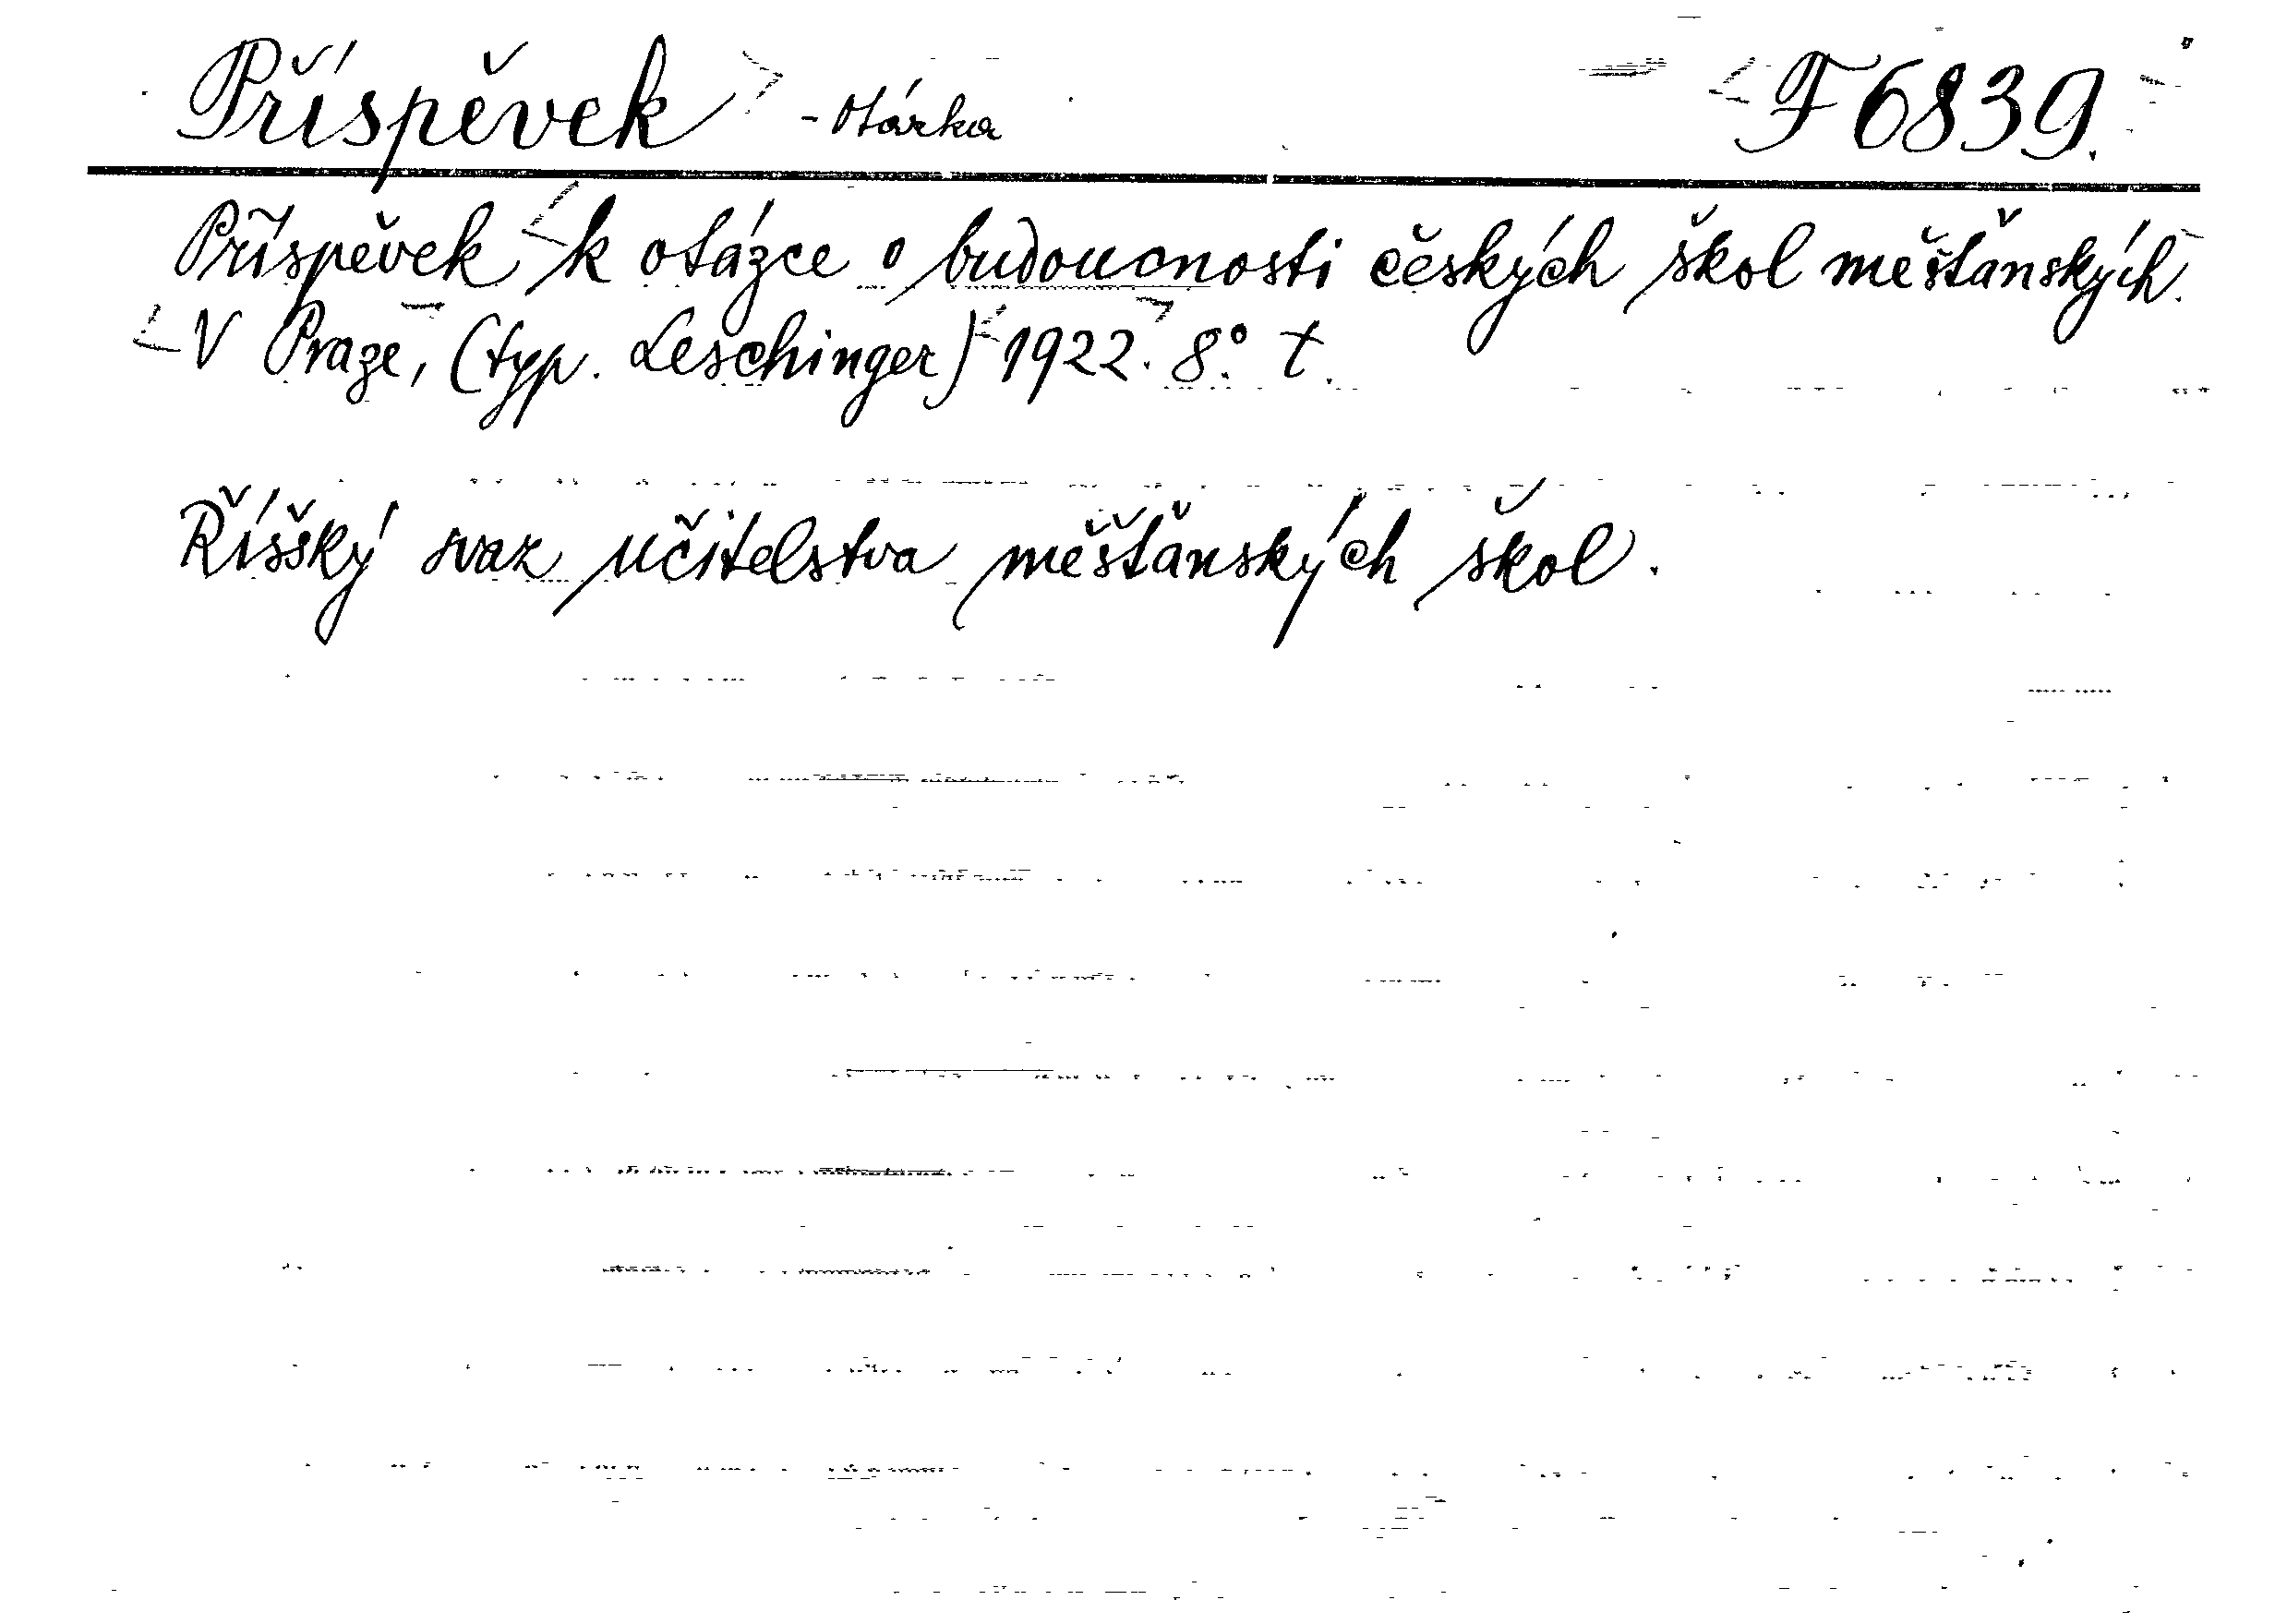 Příspěvek - otázka F 6839.
Příspěvek k otázce o budoucnosti českých škol měšťanských.
V Praze, (typ. Leschinger) 1922. 8° t.
Říšský svaz učitelstva měšťanských škol.